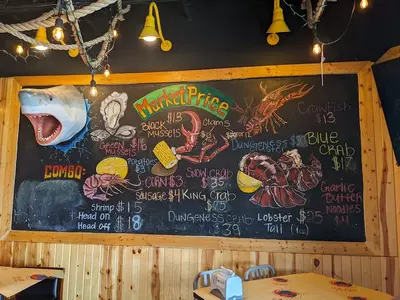 Market Price
$13
Black
Mussels
Clams
Crawfish
Green
Mussels
$16
Potato
Dungeness
Blue
Crab
$17
COMBO:
Corn $3
Snow Crab
$35
Sausage $4
King Crab
Garlic
Butter
Noodles
Shrimp $15
Head on
Head off $18
Dungeness Crab
$39
Lobster $25
Tail (1)